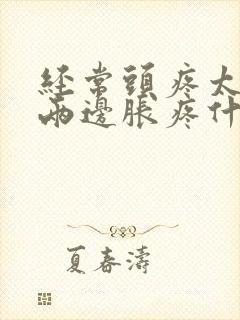 經常頭疼太
兩邊脹疼什
夏春濤